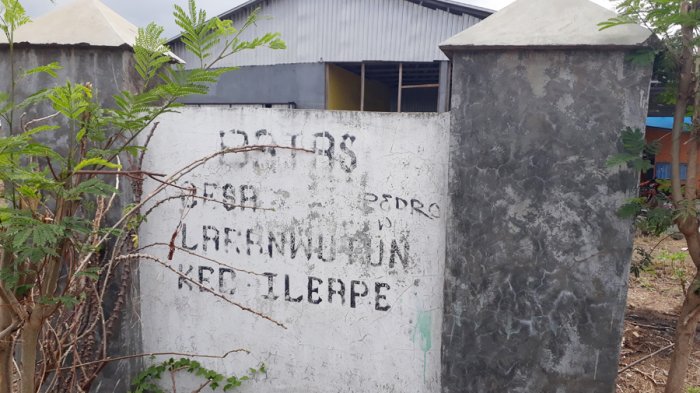 BATAS
DESA
PEDRO
LARANWUTUN
KEC. ILEAPE